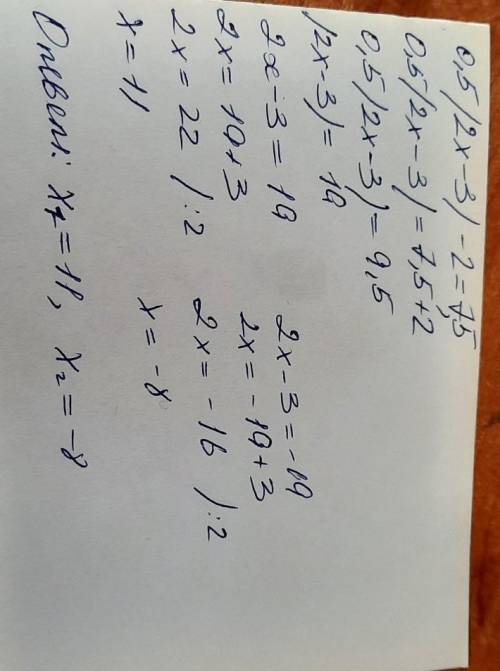 0,5|2x-3| -2=7,5
0,5|2x-3|=7,5+2
0,5|2x-3|=9,5
|2x-3|=19
2x-3=19
2x=19+3
2x=22 |:2
x=11
2x-3=-19
2x=-19+3
2x=-16 |:2
x=-8
Ответ: x₁=11, x₂=-8